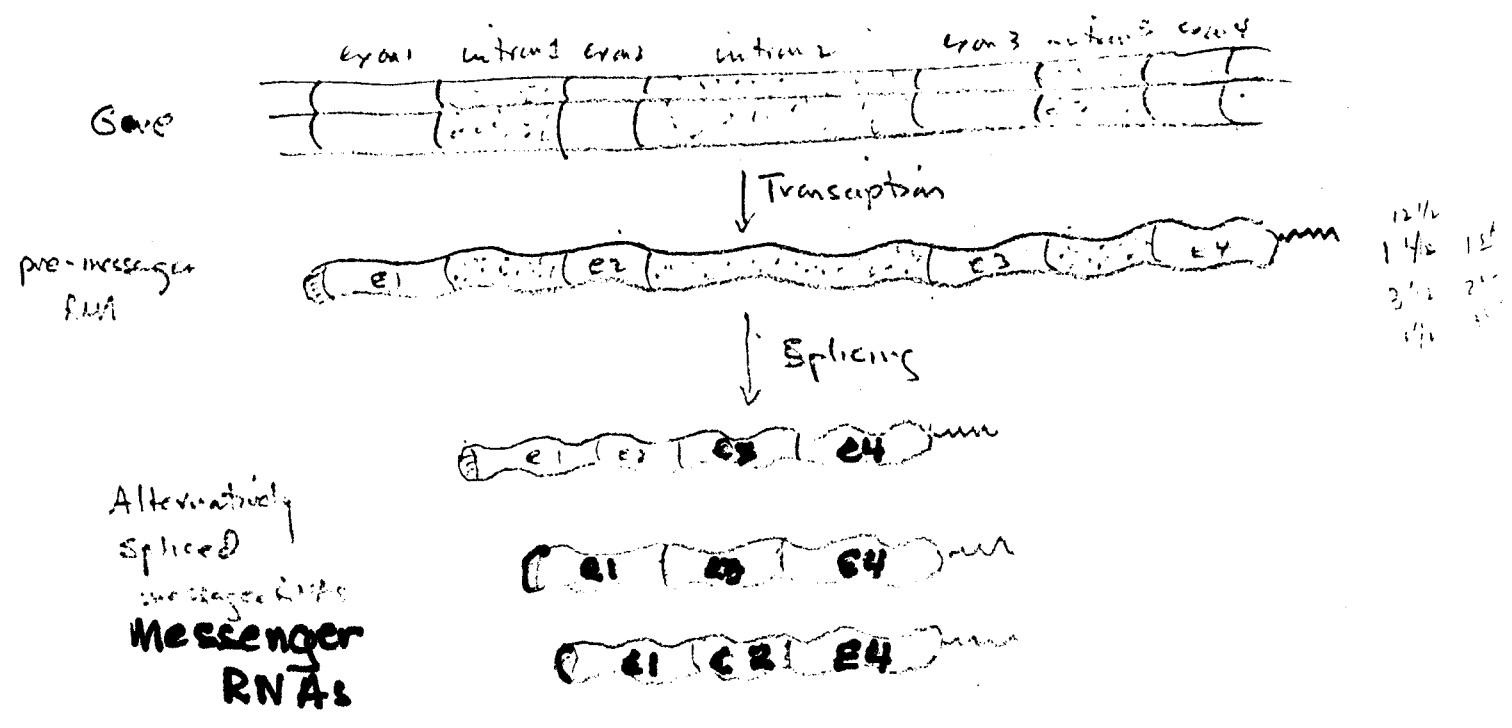 exon1 intron1 exon2 intron2 exon3 intron3 exon4
Gene
Transcription
pre-messenger
RNA
e1 e2 e3 e4
Splicing
e1 e2 e3 e4
Alternatively
Spliced
messenger RNAs
e1 e3 e4
Messenger
RNAs
e1 e2 E4
12 1/2